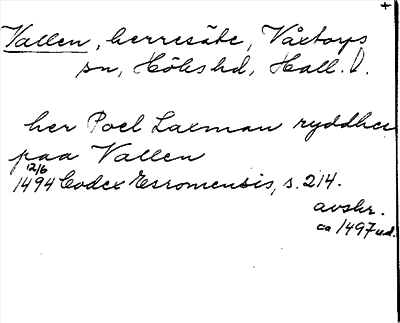 +
Vallen, herresäte, Våxtorps
sn, Höks hd, Hall. l.
her Poel Laxman ryddher
paa Vallen
12/6
1494 Codex Esromensis, s. 214.
avskr.
ca 1497 ud.